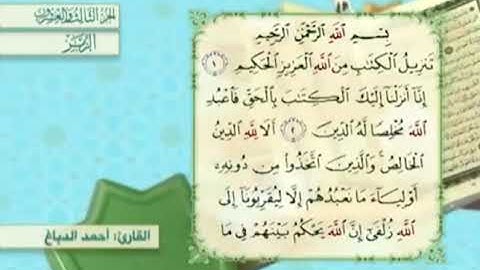 الجزء الثالث والعشرون
الزمر
بِسْمِ اللَّهِ الرَّحْمَٰنِ الرَّحِيمِ
تَنزِيلُ الْكِتَابِ مِنَ اللَّهِ الْعَزِيزِ الْحَكِيمِ ١
إِنَّا أَنزَلْنَا إِلَيْكَ الْكِتَابَ بِالْحَقِّ فَاعْبُدِ
اللَّهَ مُخْلِصًا لَّهُ الدِّينَ ٢ أَلَا لِلَّهِ الدِّينُ
الْخَالِصُ وَالَّذِينَ اتَّخَذُوا مِن دُونِهِ
أَوْلِيَاءَ مَا نَعْبُدُهُمْ إِلَّا لِيُقَرِّبُونَا إِلَى
اللَّهِ زُلْفَىٰ إِنَّ اللَّهَ يَحْكُمُ بَيْنَهُمْ فِي مَا
القارئ: أحمد الدباغ